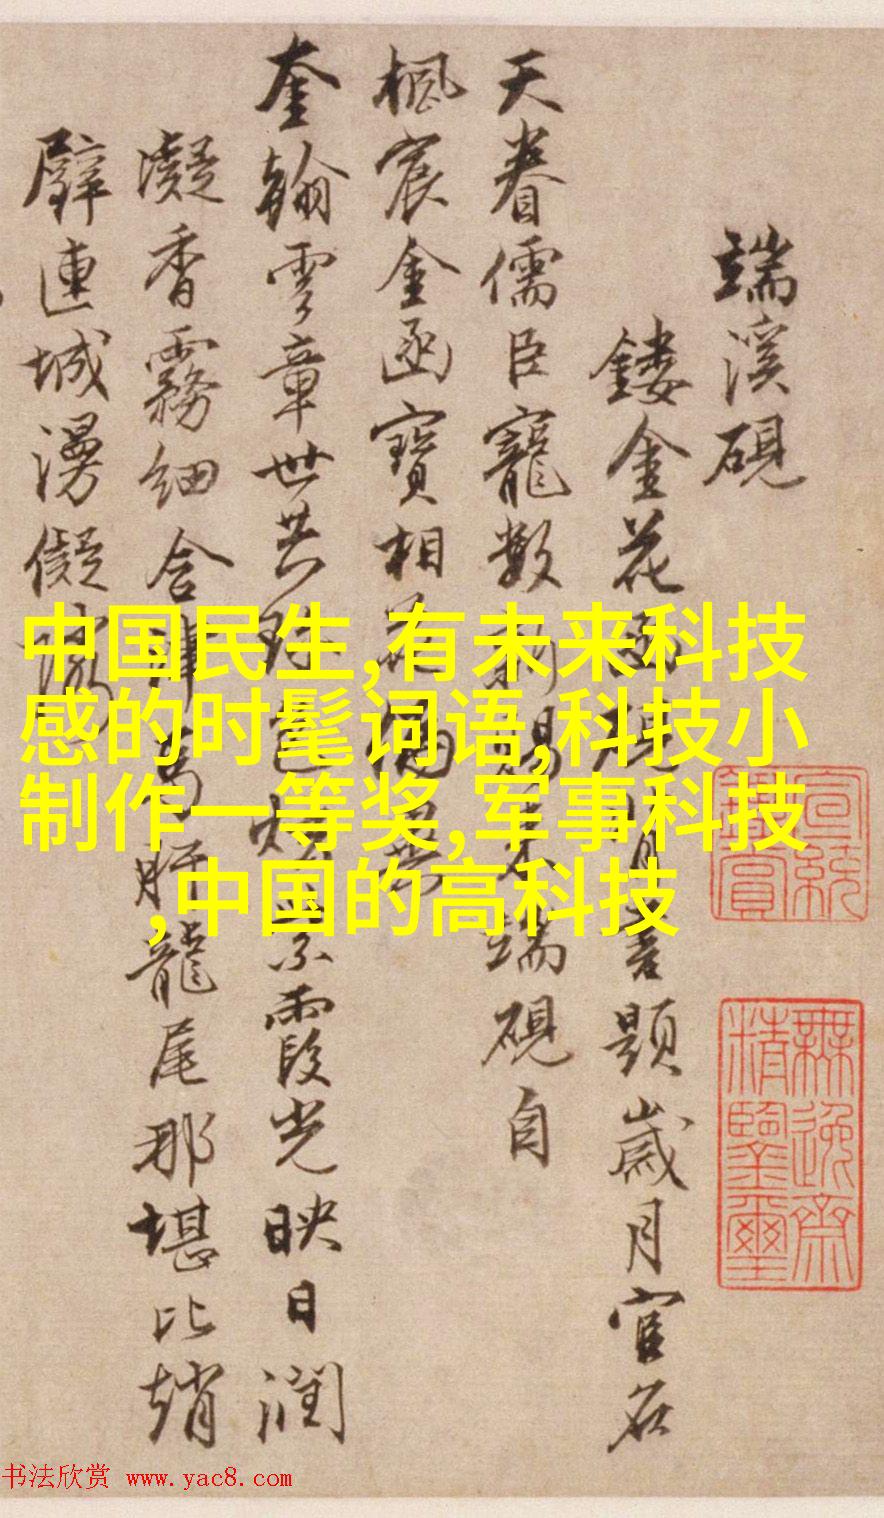 端溪硯
鏤金花書題歲月官名
天眷儒臣寵數賜端硯自
楓宸金函寶相
奎翰雲章世共紫霞光映日潤
凝香霧細含肝龍尾那堪比趙
璧連城謾儗
中国民生,有未来科技
感的时髦词语,科技小
制作一等奖,军事科技
,中国的高科技
宣統
鑑賞
無逸齋
精鑒璽
书法欣赏 www.yac8.com